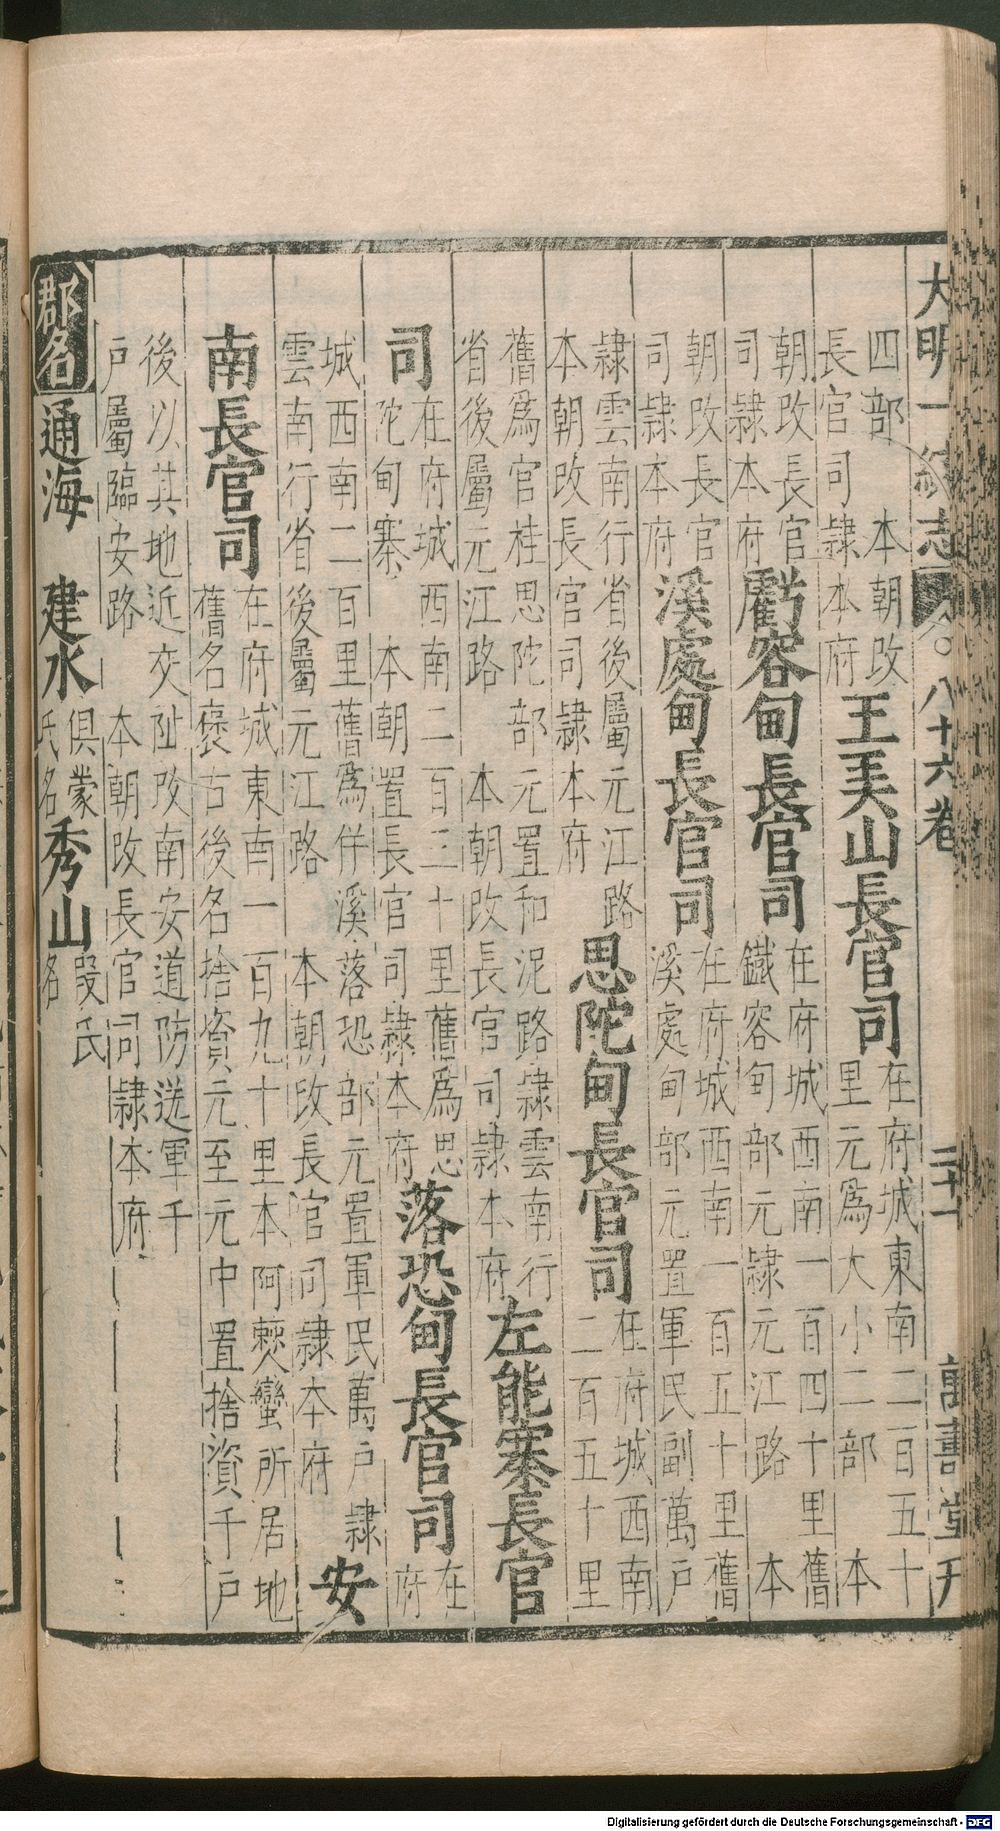 大明一統志 八十六卷 二十一 萬壽堂刊
四部 本朝改
長官司隸本府
王美山長官司
在府城東南二百五十
里元爲大小二部 本
朝改長官
司隸本府
虧容甸長官司
在府城西南一百四十里舊
鐵容甸部元隸元江路 本
朝改長官
司隸本府
溪處甸長官司
在府城西南一百五十里舊
溪處甸部元置軍民副萬戶
隸雲南行省後屬元江路
本朝改長官司隸本府
思陀甸長官司
在府城西南
二百五十里
舊爲官桂思陀部元置和泥路隸雲南行
省後屬元江路 本朝改長官司隸本府
左能寨長官
司
在府城西南二百三十里舊爲思
陀甸寨 本朝置長官司隸本府
落恐甸長官司
在
府
城西南二百里舊爲伴溪落恐部元置軍民萬戶隸
雲南行省後屬元江路 本朝改長官司隸本府
安
南長官司
在府城東南一百九十里本阿僰蠻所居地
舊名褒古後名捨資元至元中置捨資千戶
後以其地近交趾改南安道防送軍千
戶屬臨安路 本朝改長官司隸本府
郡名 通海 建水
俱蒙
氏名
秀山
段氏
名
Digitalisierung gefördert durch die Deutsche Forschungsgemeinschaft - DFG